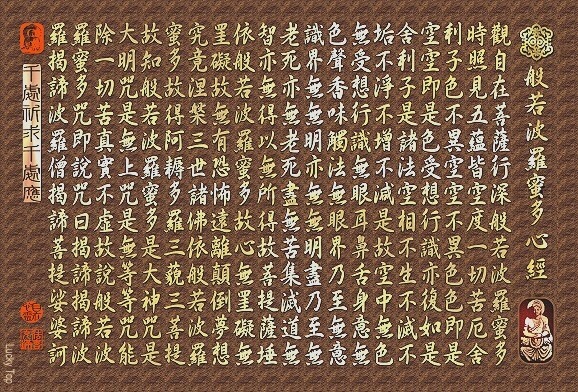 般若波羅蜜多心經
觀自在菩薩行深般若波羅蜜多
時照見五蘊皆空度一切苦厄舍
利子色不異空空不異色色即是
空空即是色受想行識亦復如是
舍利子是諸法空相不生不滅不
垢不淨不增不減是故空中無色
無受想行識無眼耳鼻舌身意無
色聲香味觸法無眼界乃至無意
識界無無明亦無無明盡乃至無
老死亦無老死盡無苦集滅道無
智亦無得以無所得故菩提薩埵
依般若波羅蜜多故心無罣礙無
罣礙故無有恐怖遠離顛倒夢想
究竟涅槃三世諸佛依般若波羅
蜜多故得阿耨多羅三藐三菩提
故知般若波羅蜜多是大神咒是
大明咒是無上咒是無等等咒能
除一切苦真實不虛故說般若波
羅蜜多咒即說咒曰揭諦揭諦波
羅揭諦波羅僧揭諦菩提娑婆訶
千處祈求千處應
Lucky Top